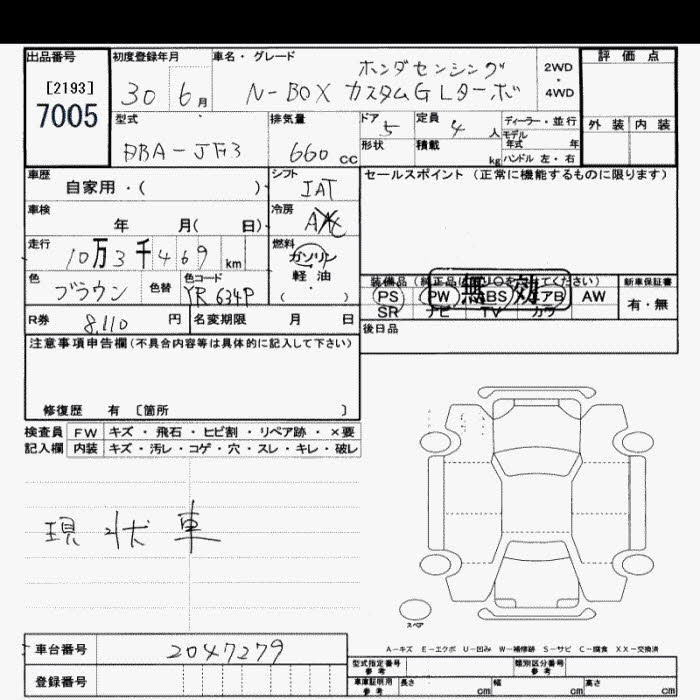 出品番号 初度登録年月 車名・グレード 評価点
[2193] 7005 30 6月 ホンダセンシング
N-BOX カスタムGLターボ 2WD・4WD
外装 内装
型式 DBA-JF3 排気量 660 CC ドア 5 定員 4 人 ディーラー・並行
モデル年式 年
形状 積載 kg ハンドル 左・右
車歴 自家用・( ) シフト IAT セールスポイント (正常に機能するものに限ります)
車検 年 月( 日) 冷房
走行 10万3千469 km 燃料 ガソリン
軽・油
( ・ )
色 ブラウン 色替 色コード YR634P
装備品 (純正品 てください) 新車保証書
無効
PS PW ABS エアB AW 有・無
SR ナビ TV カワ
R券 8,110 円 名変期限 月 日 後日品
注意事項申告欄(不具合内容等は具体的に記入して下さい)
修復歴 有 〔箇所 〕
検査員 FW キズ・飛石・ヒビ割・リペア跡・×要
記入欄 内装 キズ・汚レ・コゲ・穴・スレ・キレ・破レ
現状車
スペア
A-キズ E-エクボ U-凹み W-補修跡 S-サビ C-腐食 XX-交換済
車台番号 2047279
型式指定番号 参考 類別区分番号 参考
登録番号 車庫証明用 参考 長さ cm 幅 cm 高さ cm